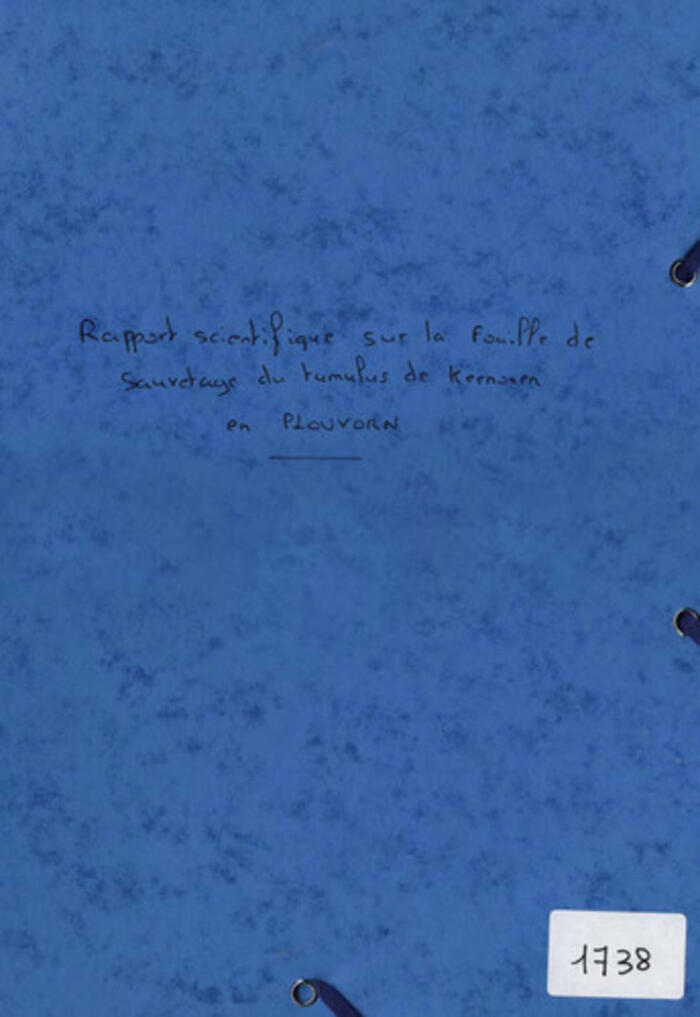 Rapport scientifique sur la Fouille de
Sauvetage du tumulus de Kernonen
en PLOUVORN
1738